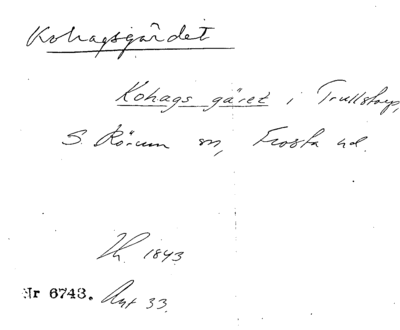 Kohagsgärdet
Kohags gäret i Trullstorp,
S. Rörum sn, Frosta hd.
Th. 1843
Nr 6743. Ant 33.